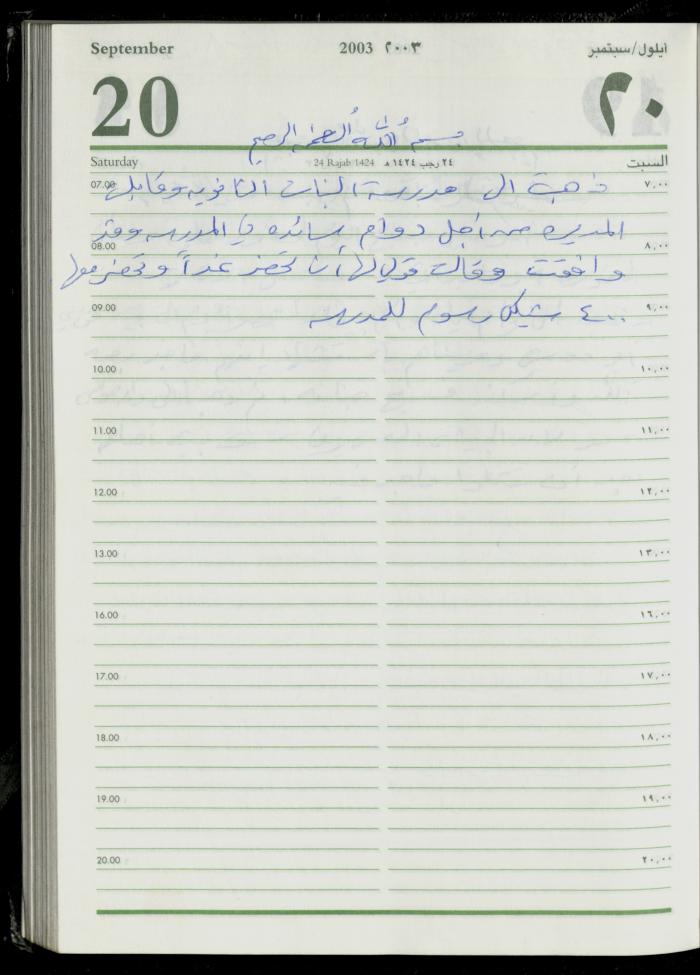 September 2003 ٢٠٠٣ أيلول/سبتمبر
20 ٢٠
بسم الله الرحمن الرحيم
Saturday 24 Rajab 1424 ٢٤ رجب ١٤٢٤ هـ السبت
07.00 ٧,٠٠
ذهبت الى مدرسة البنات الثانويه وقابلت
المديره من اجل دوام في المدرسه وقد
08.00 ٨,٠٠
وافقت وقالت قولي لها أن تحضر غداً وتحضر معها
09.00 ٩,٠٠
٤٠٠ شيكل رسوم للمدرسه
10.00 ١٠,٠٠
11.00 ١١,٠٠
12.00 ١٢,٠٠
13.00 ١٣,٠٠
16.00 ١٦,٠٠
17.00 ١٧,٠٠
18.00 ١٨,٠٠
19.00 ١٩,٠٠
20.00 ٢٠,٠٠